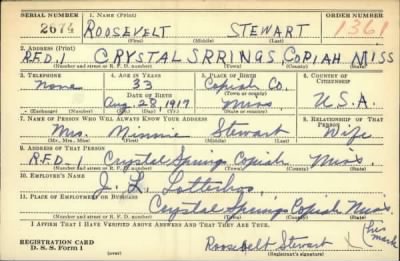 SERIAL NUMBER 1. NAME (Print) ORDER NUMBER
2674 ROOSEVELT STEWART 1361
(First) (Middle) (Last)
2. ADDRESS (Print)
R.F.D. 1 CRYSTAL SRRINGS, COPIAH MISS
(Number and street or R. F. D. number) (Town) (County) (State)
3. TELEPHONE 4. AGE IN YEARS 5. PLACE OF BIRTH 6. COUNTRY OF CITIZENSHIP
None 33 Copiah Co.
DATE OF BIRTH (Town or county)
Aug. 28, 1917 Miss U.S.A.
(Exchange) (Number) (Mo.) (Day) (Yr.) (State or country)
7. NAME OF PERSON WHO WILL ALWAYS KNOW YOUR ADDRESS 8. RELATIONSHIP OF THAT PERSON
Mrs. Minnie Stewart Wife
(Mr., Mrs., Miss) (First) (Middle) (Last)
9. ADDRESS OF THAT PERSON
R.F.D. 1 Crystal Springs Copiah Miss.
(Number and street or R. F. D. number) (Town) (County) (State)
10. EMPLOYER'S NAME
J. L. Lotterhos
11. PLACE OF EMPLOYMENT OR BUSINESS
Crystal Springs Copiah Miss
(Number and street or R. F. D. number) (Town) (County) (State)
I AFFIRM THAT I HAVE VERIFIED ABOVE ANSWERS AND THAT THEY ARE TRUE.
his
REGISTRATION CARD Roosevelt Stewart X mark
D. S. S. Form 1 (over) (Registrant's signature)